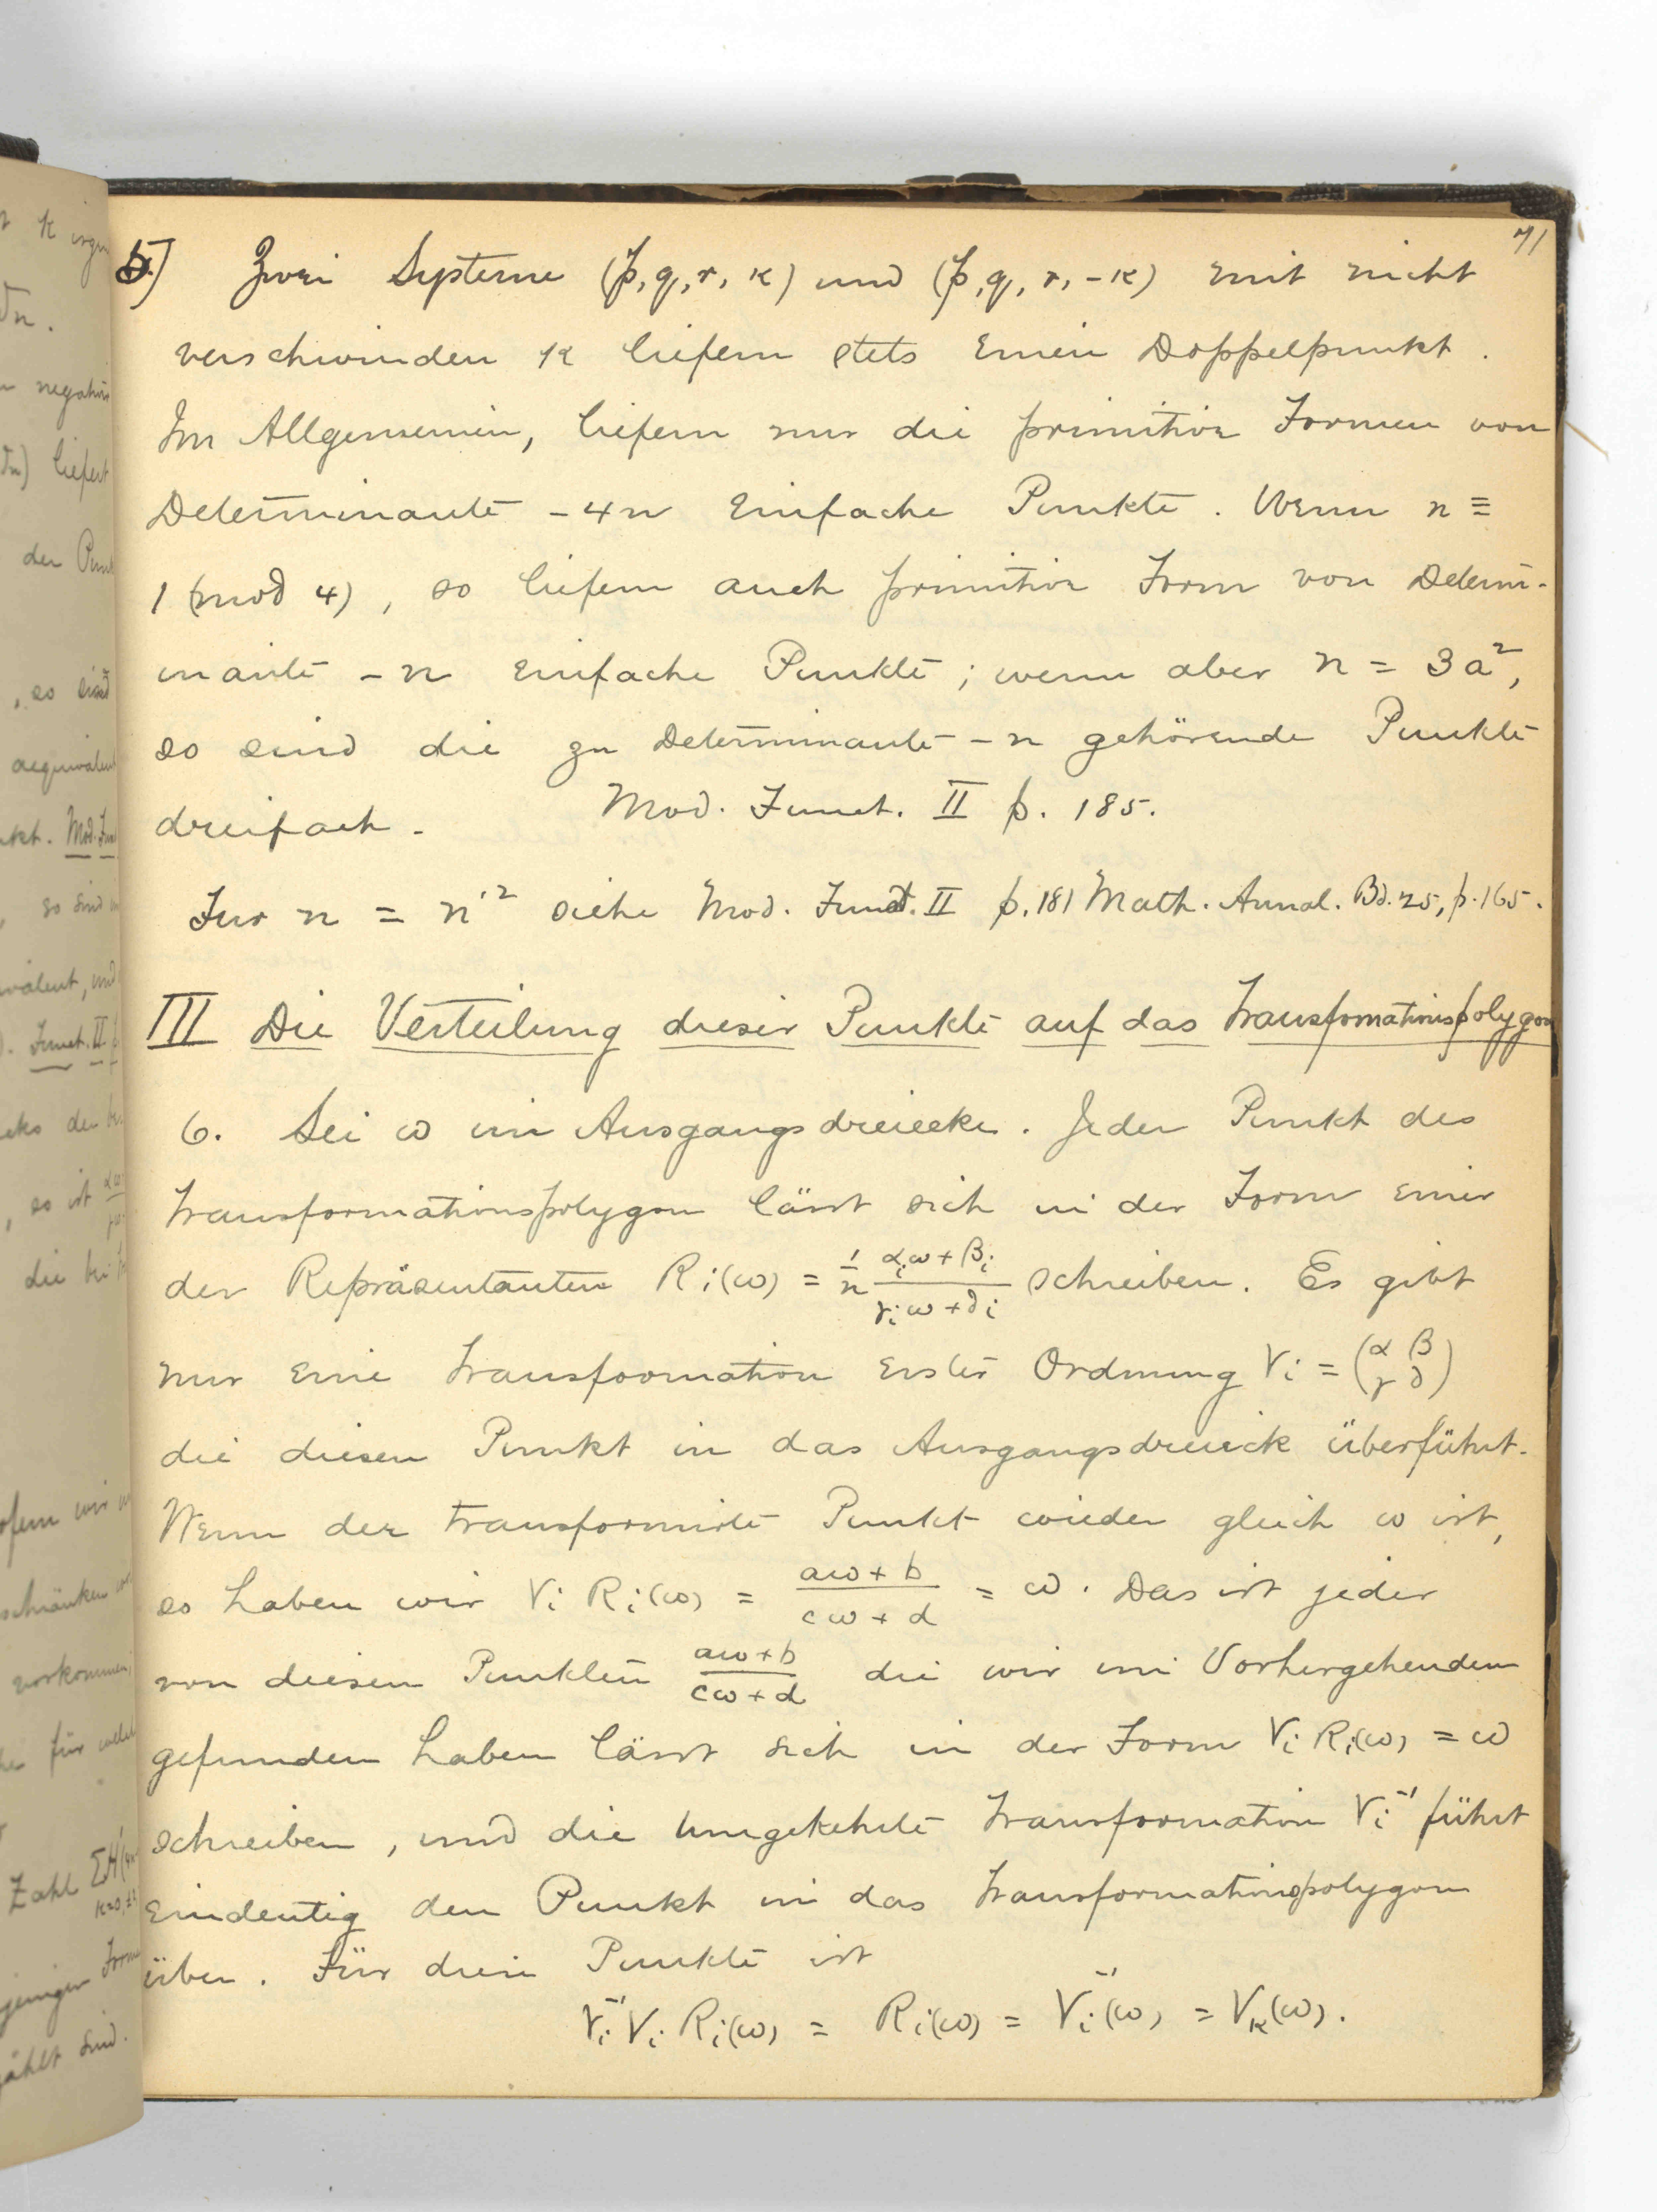 71
5.) Zwei Systeme (p, q, r, κ) und (p, q, r, -κ) mit nicht
verschwinden κ liefern stets einen Doppelpunkt.
Im Allgemeinen, liefern nur die primitive Formen von
Determinante -4n einfache Punkte. Wenn n ≡
1 (mod 4), so liefern auch primitive Form von Determi-
nante -n einfache Punkte; wenn aber n = 3a²,
so sind die zu Determinante -n gehörende Punkte
dreifach. Mod. Funct. II p. 185.
Fur n = n'² siehe Mod. Funct. II p. 181 Math. Annal. Bd. 25, p. 165.
III Die Verteilung dieser Punkte auf das Transfomationspolygon
6. Sei ω im Ausgangsdreiecke. Jeder Punkt des
Transformationspolygon lässt sich in der Form einer
der Repräsentanten Rᵢ(ω) = 1/n (αᵢω + βᵢ)/(γᵢω + δᵢ) schreiben. Es gibt
nur eine Transformation erster Ordnung Vᵢ = (α β / γ δ)
die diesen Punkt in das Ausgangsdreieck überführt.
Wenn der transformirte Punkt wieder gleich ω ist,
so haben wir Vᵢ Rᵢ(ω) = (aω + b)/(cω + d) = ω. Das ist jeder
von diesen Punkten (aω + b)/(cω + d) die wir im Vorhergehenden
gefunden haben lässt sich in der Form Vᵢ Rᵢ(ω) = ω
schreiben, und die umgekehrte Transformation Vᵢ⁻¹ führt
eindeutig den Punkt in das Transformationspolygon
über. Für diese Punkte ist
Vᵢ⁻¹ Vᵢ Rᵢ(ω) = Rᵢ(ω) = Vᵢ⁻¹(ω) = Vκ(ω).